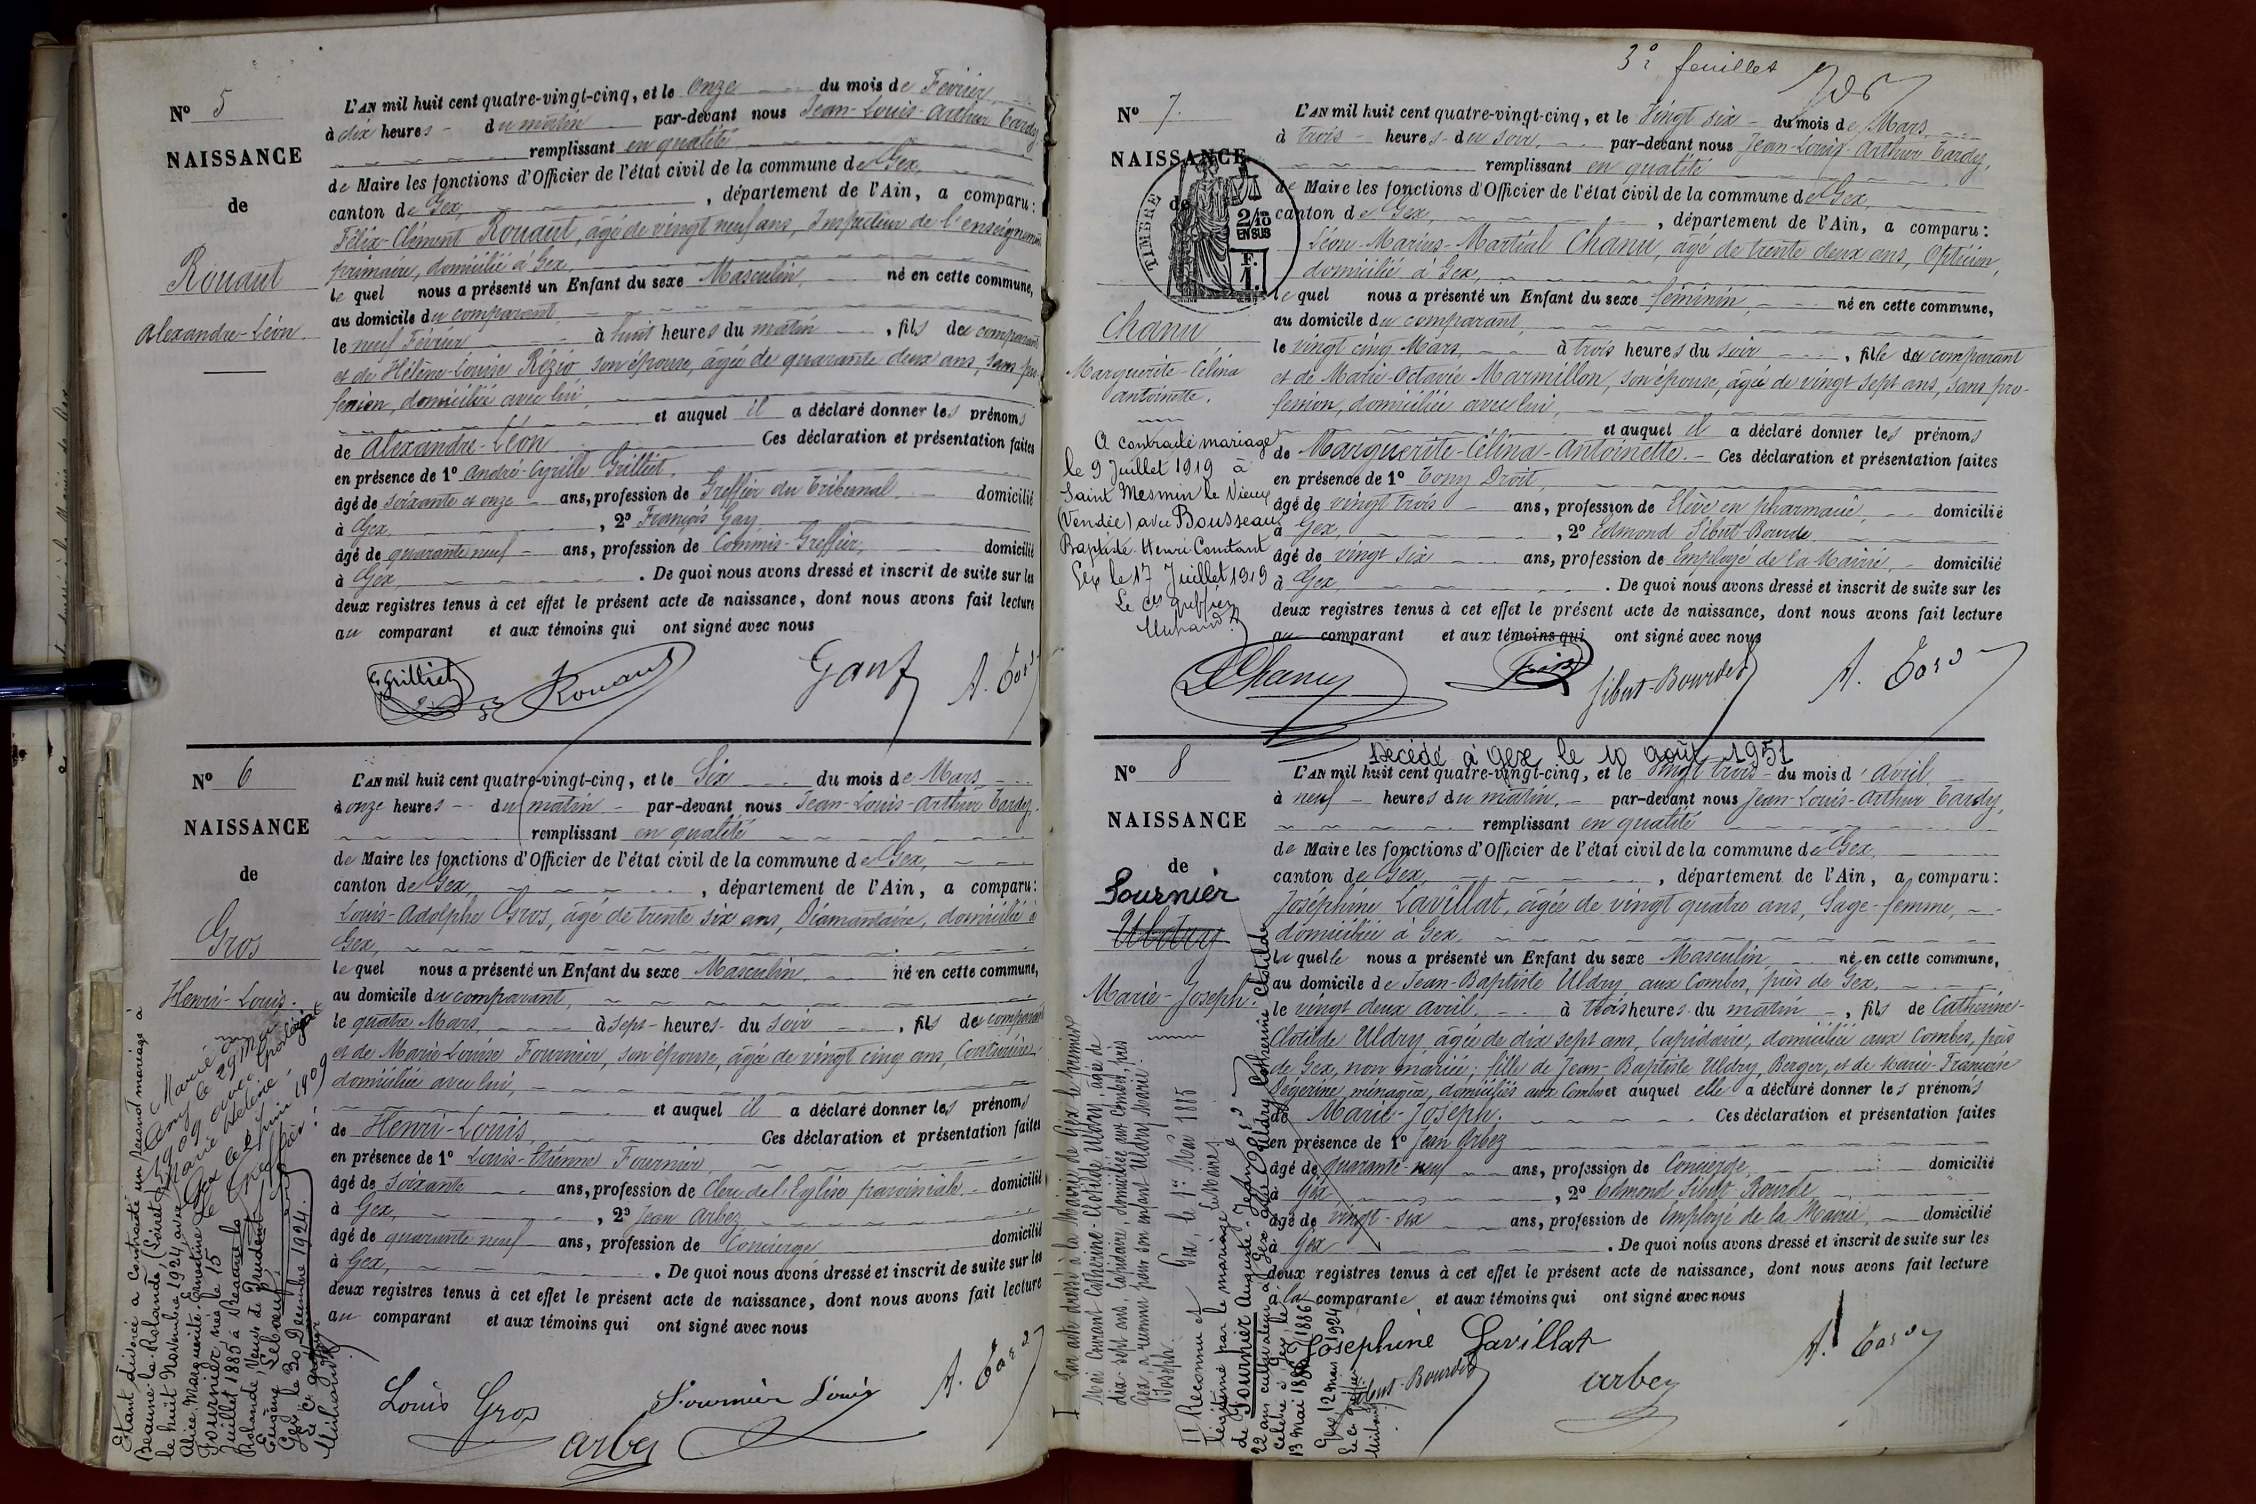 Nº 5
NAISSANCE
de
Rouaut
Alexandre-Léon.
L'AN mil huit cent quatre-vingt-cinq, et le onze du mois de Février
à dix heures du matin par-devant nous Jean-Louis-Arthur Tardy
remplissant en qualité
de Maire les fonctions d'Officier de l'état civil de la commune de Gex,
canton de Gex, , département de l'Ain, a comparu:
Félix-Clément Rouaut, âgé de vingt neuf ans, Inspecteur de l'enseignement
primaire, domicilié à Gex,
le quel nous a présenté un Enfant du sexe Masculin, né en cette commune,
au domicile du comparant,
le neuf Février à huit heures du matin , fils du comparant
et de Hélène-Louise son épouse, âgée de quarante deux ans, sans pro-
fession, domiciliée avec lui,
et auquel il a déclaré donner les prénoms
de Alexandre-Léon Ces déclaration et présentation faites
en présence de 1º André-Cyrille Grilliet,
âgé de soixante et onze ans, profession de Greffier du Tribunal, domicilié
à Gex , 2º François Gay
âgé de quarante neuf ans, profession de Commis-Greffier, domicilié
à Gex . De quoi nous avons dressé et inscrit de suite sur les
deux registres tenus à cet effet le présent acte de naissance, dont nous avons fait lecture
au comparant et aux témoins qui ont signé avec nous
Grilliet Rouaut Gay A. Tardy
Nº 6
NAISSANCE
de
Gros
Henri-Louis.
L'AN mil huit cent quatre-vingt-cinq, et le Six du mois de Mars
à onze heures du matin par-devant nous Jean-Louis-Arthur Tardy,
remplissant en qualité
de Maire les fonctions d'Officier de l'état civil de la commune de Gex,
canton de Gex , département de l'Ain, a comparu:
Louis-Adolphe Gros, âgé de trente six ans, Diamantaire, domicilié à
Gex,
le quel nous a présenté un Enfant du sexe Masculin né en cette commune,
au domicile du comparant,
le quatre Mars, à sept heures du soir , fils du comparant
et de Marie-Louise Fournier, son épouse, âgée de vingt cinq ans, Couturière,
domiciliée avec lui,
et auquel il a déclaré donner les prénoms
de Henri-Louis Ces déclaration et présentation faites
en présence de 1º Louis-Etienne Fournier,
âgé de soixante ans, profession de Clerc de l'Eglise paroissiale domicilié
à Gex, , 2º Jean Arbez
âgé de quarante neuf ans, profession de Concierge domicilié
à Gex, . De quoi nous avons dressé et inscrit de suite sur les
deux registres tenus à cet effet le présent acte de naissance, dont nous avons fait lecture
au comparant et aux témoins qui ont signé avec nous
Louis Gros Fournier Louis A. Tardy
arbez
Marié
le 29 Mai
1909 avec
Marie Hélène
Gex le 2 juin 1909
Le Greffier:
Etant divorcé a contracté un second mariage à
Beaune-la-Rolande, (Loiret)
le huit Novembre 1924 avec
Alice Marguerite Ernestine
Fournier, née le 15
Juillet 1885 à Beaune la
Rolande, Veuve de Prudent
Eugène Leboeuf
Gex, le 30 Décembre 1924.
Le Cs greffier
3º feuillet
Nº 7.
NAISSANCE
de
TIMBRE
2/10
EN SUS
F.
1.
Chanu
Marguerite-Célina
Antoinette.
A contracté mariage
le 9 Juillet 1919 à
Saint Mesmin le Vieux
(Vendée) avec Bousseau
Baptiste Henri Constant
Gex le 17 Juillet 1919
Le Cs greffier
L'AN mil huit cent quatre-vingt-cinq, et le Vingt six du mois de Mars
à trois heures du soir, par-devant nous Jean-Louis-Arthur Tardy,
remplissant en qualité
de Maire les fonctions d'Officier de l'état civil de la commune de Gex,
canton de Gex, , département de l'Ain, a comparu:
Léon-Marius-Martial Chanu, âgé de trente deux ans, Opticien,
domicilié à Gex,
le quel nous a présenté un Enfant du sexe féminin, né en cette commune,
au domicile du comparant,
le vingt cinq Mars, à trois heures du soir , fille du comparant
et de Marie-Octavie Marmillon, son épouse, âgée de vingt sept ans, sans pro-
fession, domiciliée avec lui,
et auquel il a déclaré donner les prénoms
de Marguerite-Célina-Antoinette. Ces déclaration et présentation faites
en présence de 1º Tony Droit,
âgé de vingt trois ans, profession de Elève en pharmacie, domicilié
à Gex, , 2º Edmond Sibut-Bourde
âgé de vingt six ans, profession de Employé de la Mairie, domicilié
à Gex . De quoi nous avons dressé et inscrit de suite sur les
deux registres tenus à cet effet le présent acte de naissance, dont nous avons fait lecture
au comparant et aux témoins qui ont signé avec nous
LChanu Sibut-Bourde A. Tardy
Décédé à Gex le 10 août 1951
Nº 8
NAISSANCE
de
Fournier
Uldry
Marie-Joseph.
L'AN mil huit cent quatre-vingt-cinq, et le Vingt trois du mois d'Avril
à neuf heures du matin, par-devant nous Jean-Louis-Arthur Tardy,
remplissant en qualité
de Maire les fonctions d'Officier de l'état civil de la commune de Gex,
canton de Gex, , département de l'Ain, a comparu:
Joséphine Lavillat, âgée de vingt quatre ans, Sage-femme,
domiciliée à Gex,
la quelle nous a présenté un Enfant du sexe Masculin né en cette commune,
au domicile de Jean-Baptiste Uldry, aux Combes, près de Gex,
le vingt deux avril, à trois heures du matin , fils de Catherine-
Clotilde Uldry, âgée de dix sept ans, Lapidaire, domiciliée aux Combes, près
de Gex, non mariée; fille de Jean-Baptiste Uldry, Berger, et de Marie-Françoise
ménagère, domiciliés aux Combes et auquel elle a déclaré donner les prénoms
de Marie-Joseph. Ces déclaration et présentation faites
en présence de 1º Jean Arbez
âgé de quarante-neuf ans, profession de Concierge domicilié
à Gex , 2º Edmond Sibut-Bourde
âgé de vingt-six ans, profession de Employé de la Mairie domicilié
à Gex . De quoi nous avons dressé et inscrit de suite sur les
deux registres tenus à cet effet le présent acte de naissance, dont nous avons fait lecture
à la comparante, et aux témoins qui ont signé avec nous
Joséphine Lavillat A. Tardy
Sibut-Bourde arbez
I Par acte dressé à la Mairie de Gex le premier
Mai courant Catherine-Clotilde Uldry, âgée de
dix-sept ans, lapidaire, domiciliée aux Combes, près
Gex, a reconnu pour son enfant Uldry Marie-
Joseph. Gex, le 1er Mai 1885
Le Maire,
II Reconnu et
légitimé par le mariage
de Fournier Auguste-Jean
22 ans cultivateur à Gex avec Uldry Catherine Clotilde
célébré à Gex, le
13 mai 1886
Gex 12 mars 1924
Le Cs greffier